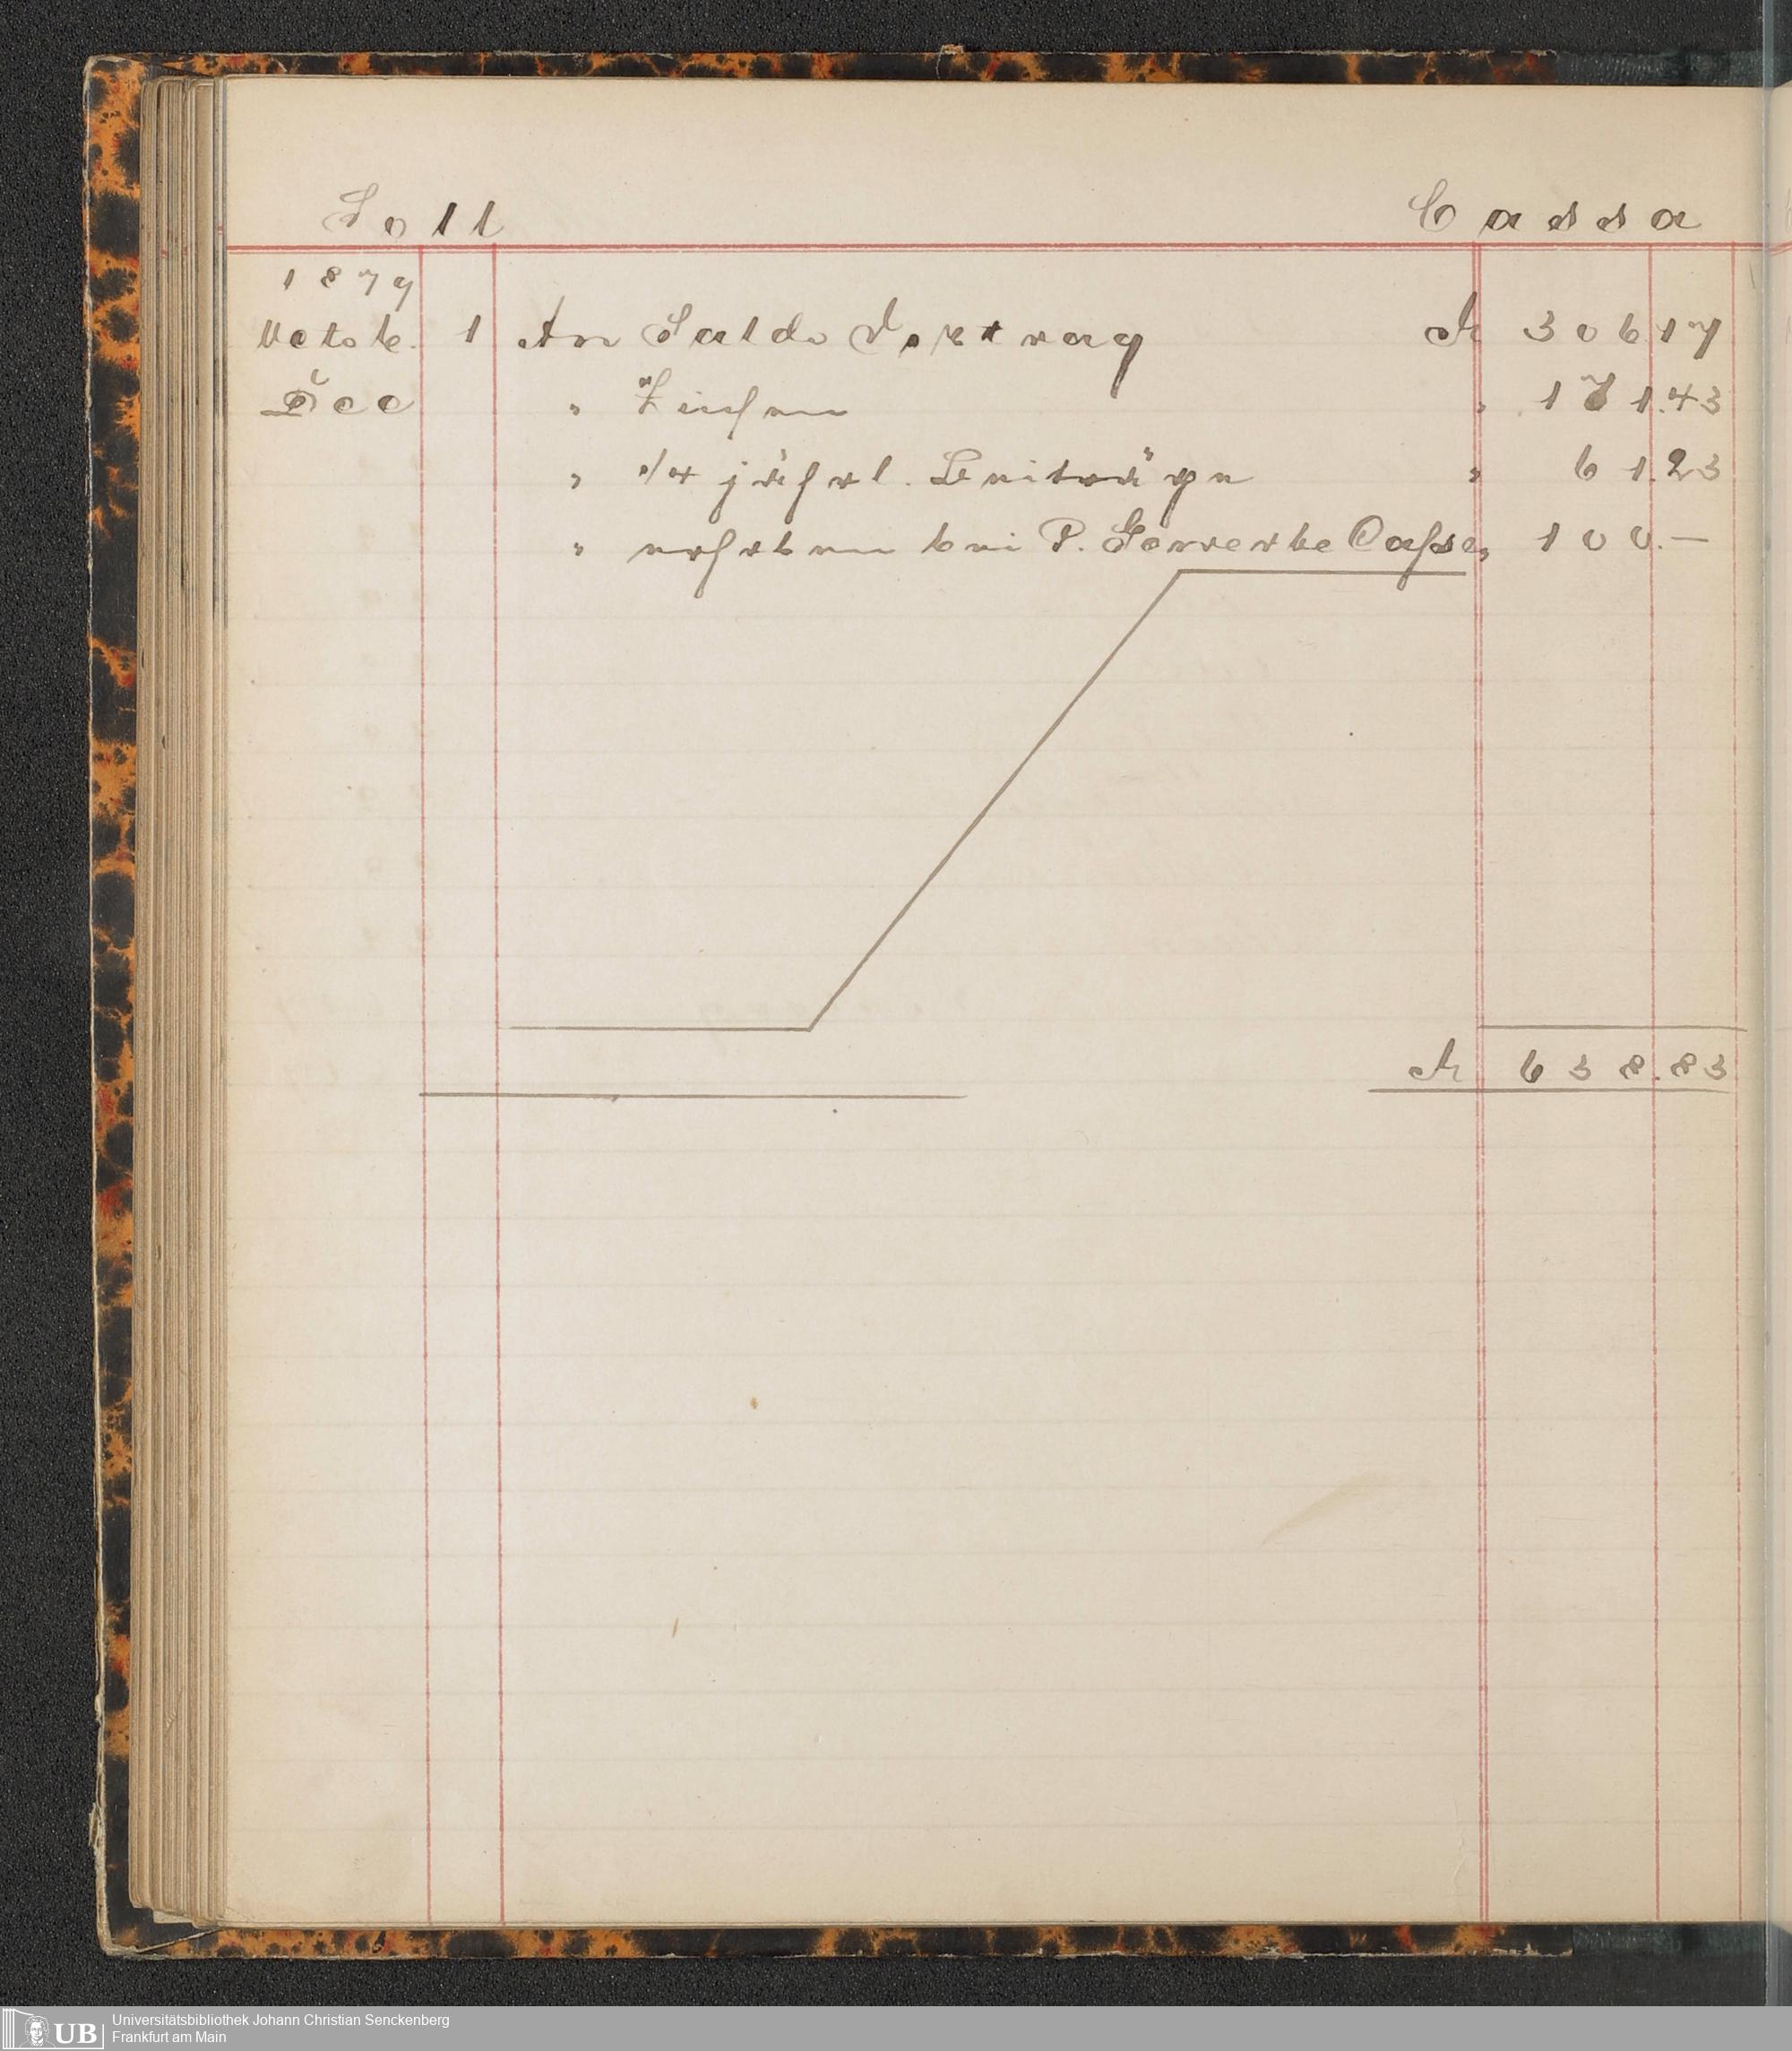 Soll Cassa
1879
Octob. 1 An Saldo Vortrag M 306 17
Dec " Zinsen " 171.43
" 1/4 jährl. Beiträge " 61.23
" erhoben bei P. Gewerbe Casse " 100.—
M 638.83
Universitätsbibliothek Johann Christian Senckenberg
UB Frankfurt am Main